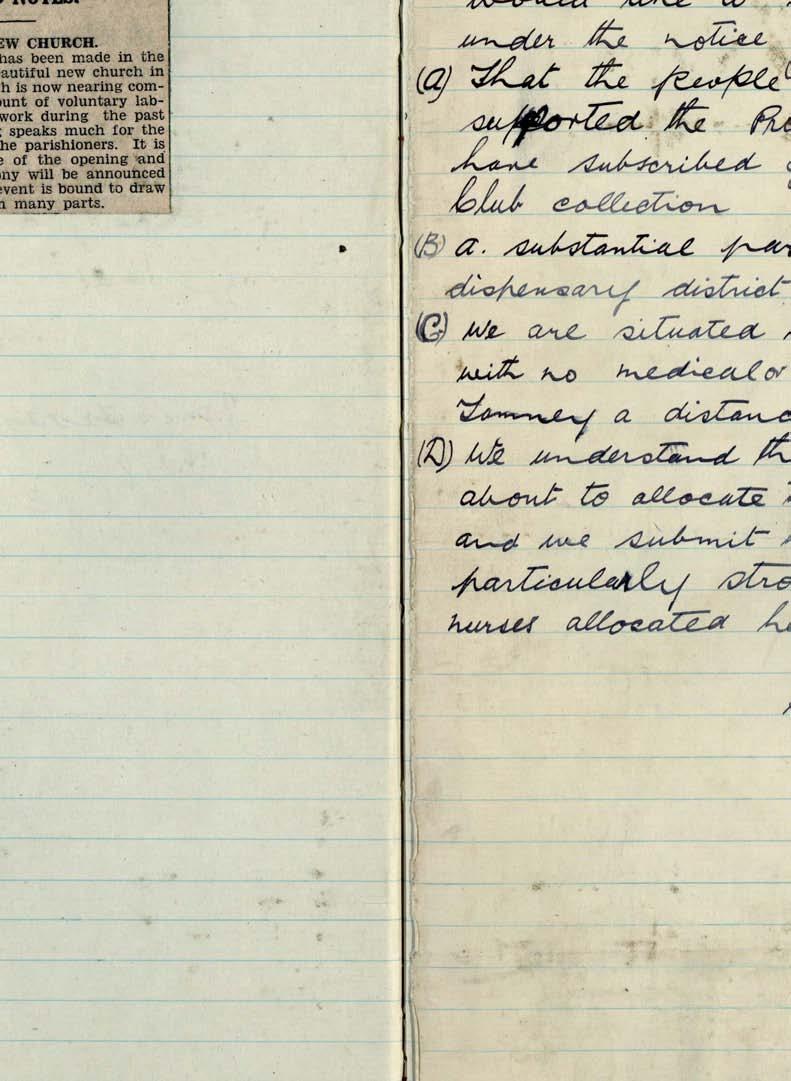 NOTES.
EW CHURCH.
has been made in the
autiful new church in
h is now nearing com-
ount of voluntary lab-
work during the past
speaks much for the
he parishioners. It is
e of the opening and
ony will be announced
event is bound to draw
n many parts.
would like to
under the notice
(A) That the people
supported the Pro
have subscribed
Club collection
(B) a. substantial par
dispensary district
(C) we are situated
with no medical or
Tamney a distanc
(D) We understand th
about to allocate
and we submit
particularly stro
nurses allocated he